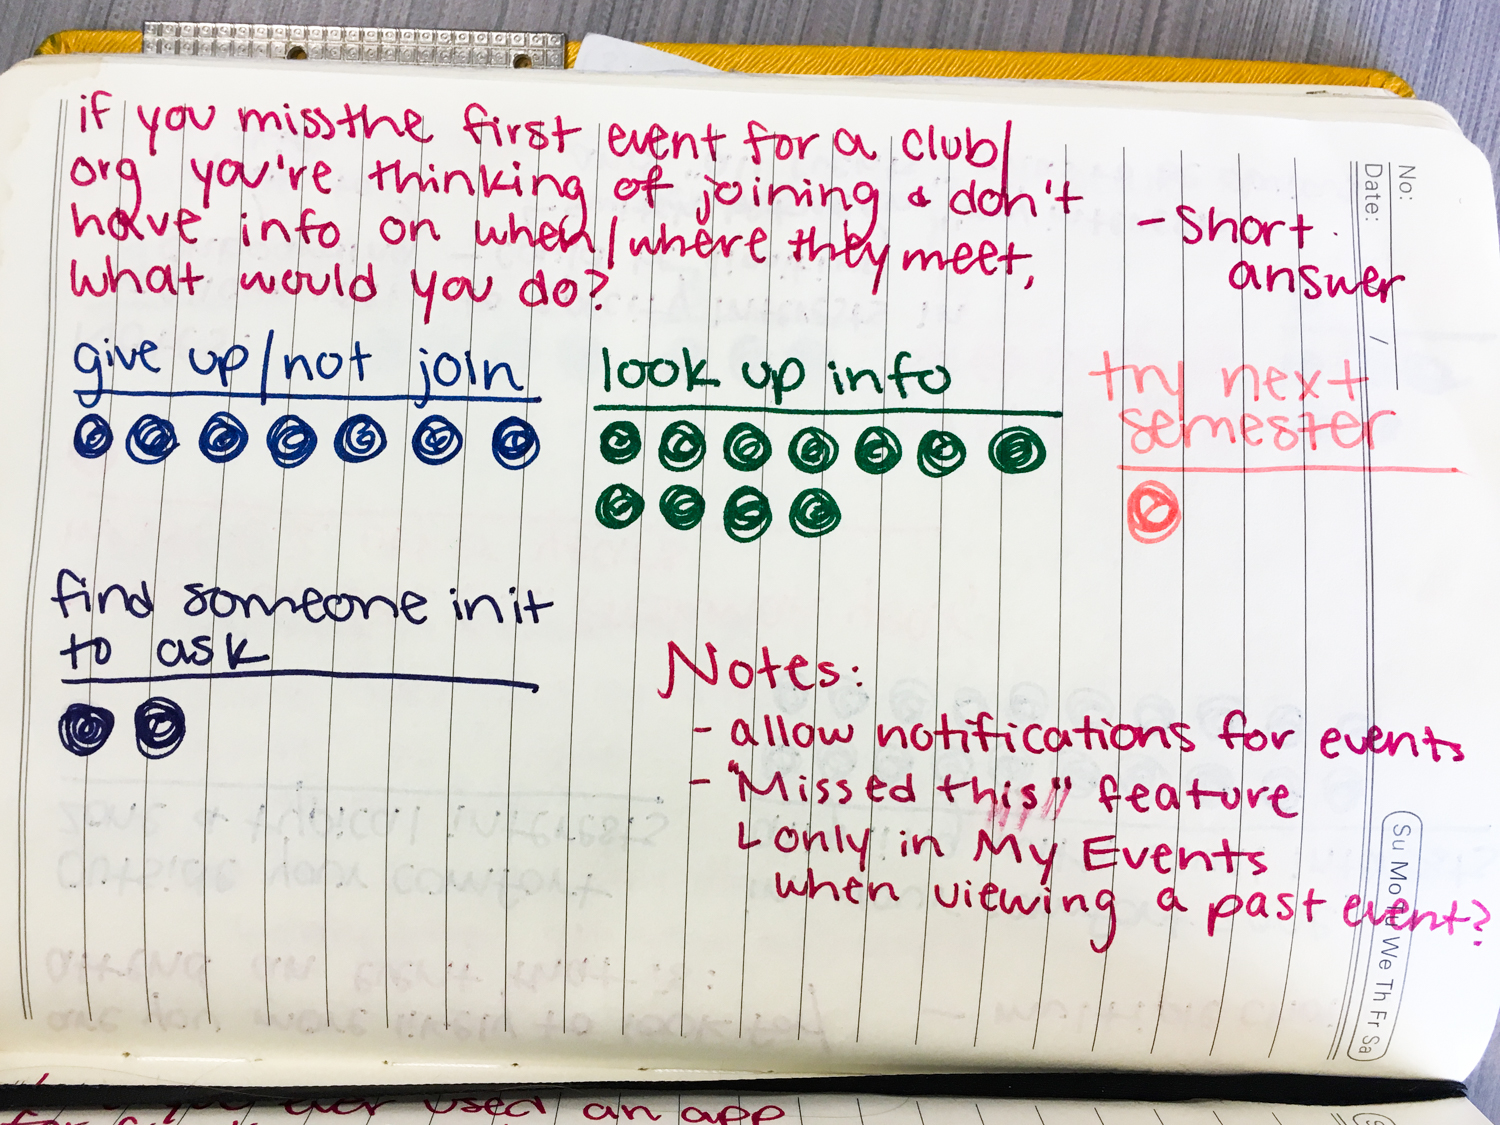 if you miss the first event for a club/
org you're thinking of joining & don't
have info on when/where they meet,
what would you do?
- short
answer
give up/not join
look up info
try next
semester
find someone in it
to ask
Notes:
- allow notifications for events
- "Missed this" feature
L only in My Events
when viewing a past event?
No:
Date: /
Su Mo Tu We Th Fr Sa
ever used an app